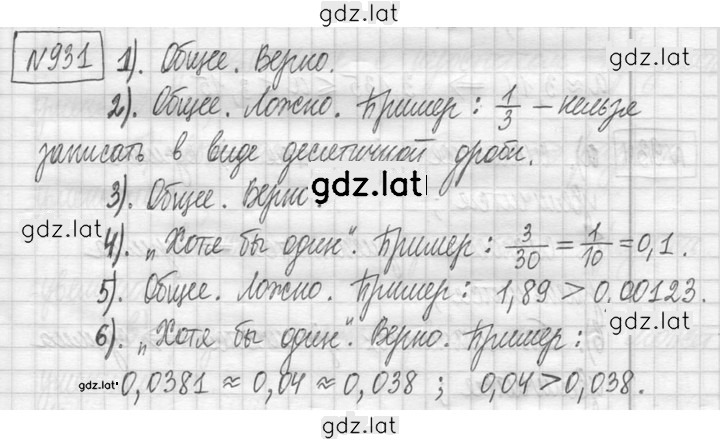 gdz.lat
№931 1). Общее. Верно.
gdz.lat
2). Общее. Ложно. Пример: 1/3 – нельзя
записать в виде десятичной дроби.
3). Общее. Верно.
gdz.lat
gdz.lat
4). „Хотя бы один". Пример: 3/30 = 1/10 = 0,1.
5). Общее. Ложно. Пример: 1,89 > 0.00123.
gdz.lat
6). „Хотя бы один". Верно. Пример:
gdz.lat
0,0381 ≈ 0,04 ≈ 0,038 ; 0,04 > 0,038.
gdz.lat